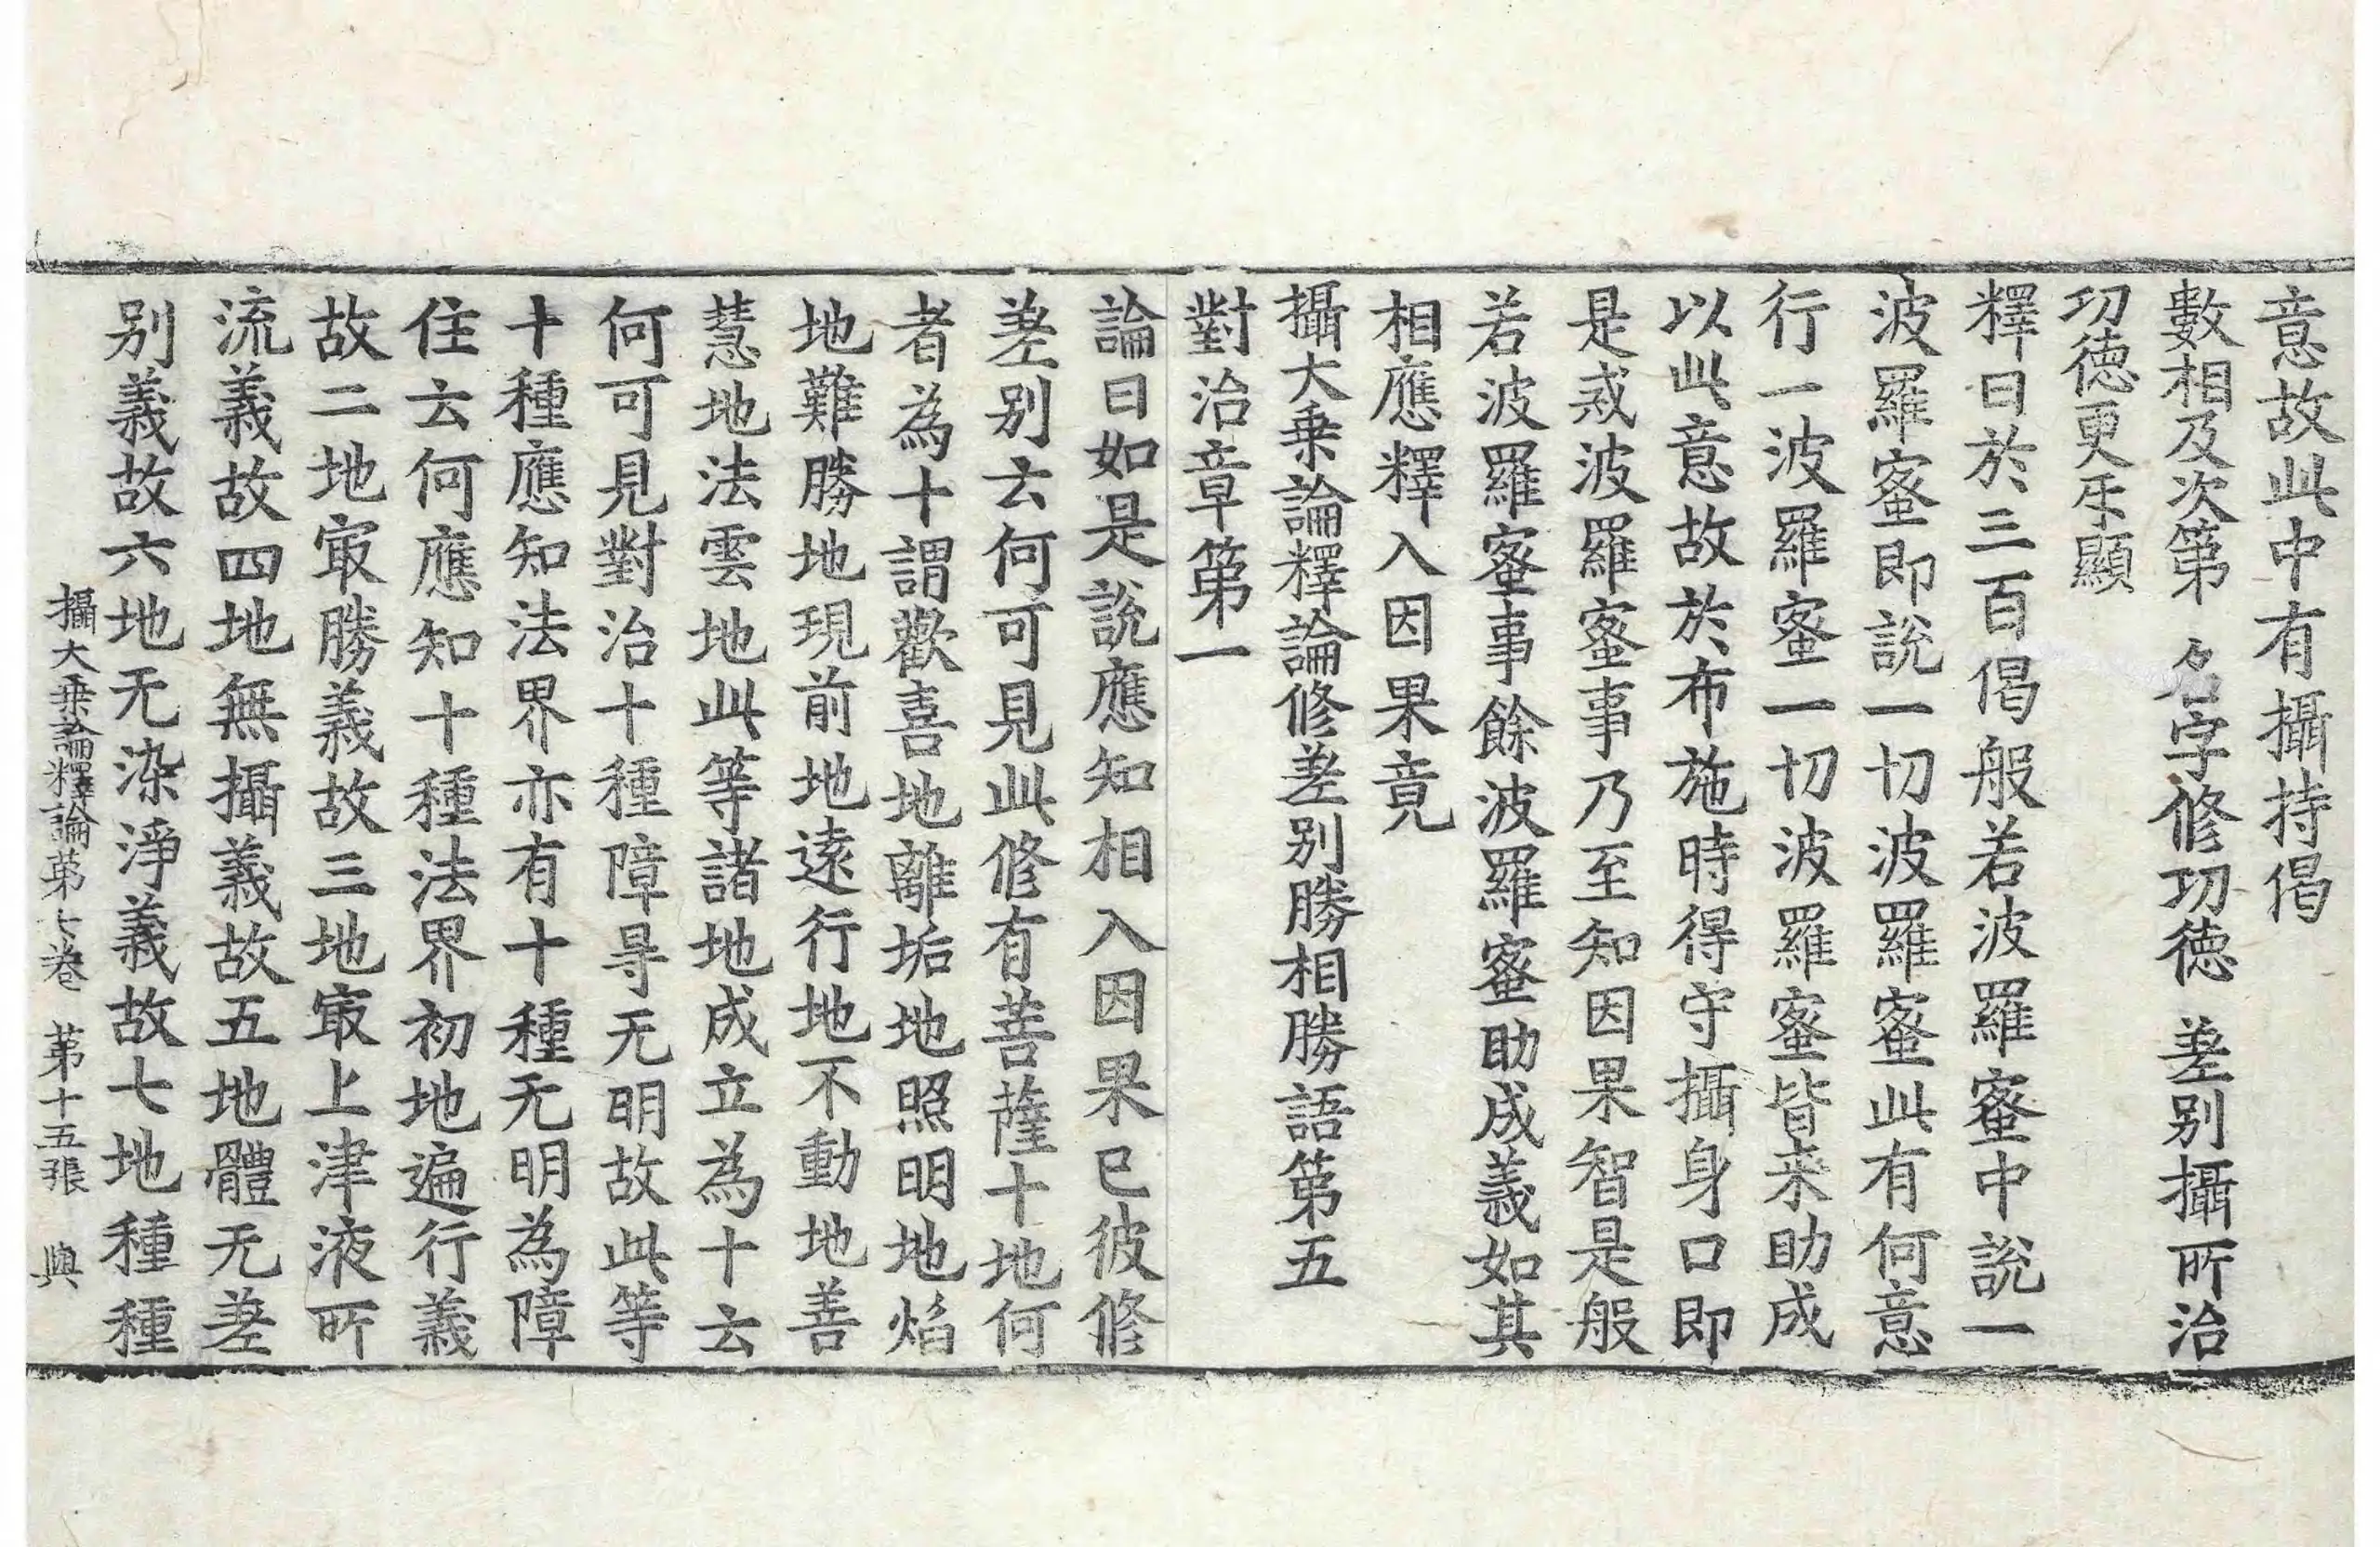 意故此中有攝持偈
數相及次第　名字修㓛德　差别攝所治
㓛德更㸦顯
釋曰於三百偈般若波羅蜜中說一
波羅蜜即說一切波羅蜜此有何意
行一波羅蜜一切波羅蜜皆来助成
以此意故於布施時得守攝身口即
是戒波羅蜜事乃至知因果智是般
若波羅蜜事餘波羅蜜助成義如其
相應釋入因果竟
攝大乗論釋論修差别勝相勝語第五
對治章第一
論曰如是說應知相入因果已彼修
差别云何可見此修有菩薩十地何
者為十謂歡喜地離垢地照明地焰
地難勝地現前地遠行地不動地善
慧地法雲地此等諸地成立為十云
何可見對治十種障㝵无明故此等
十種應知法界亦有十種无明為障
住云何應知十種法界初地遍行義
故二地㝡勝義故三地㝡上津液所
流義故四地無攝義故五地體无差
别義故六地无染淨義故七地種種
攝大乗論釋論第七卷　第十五張　與